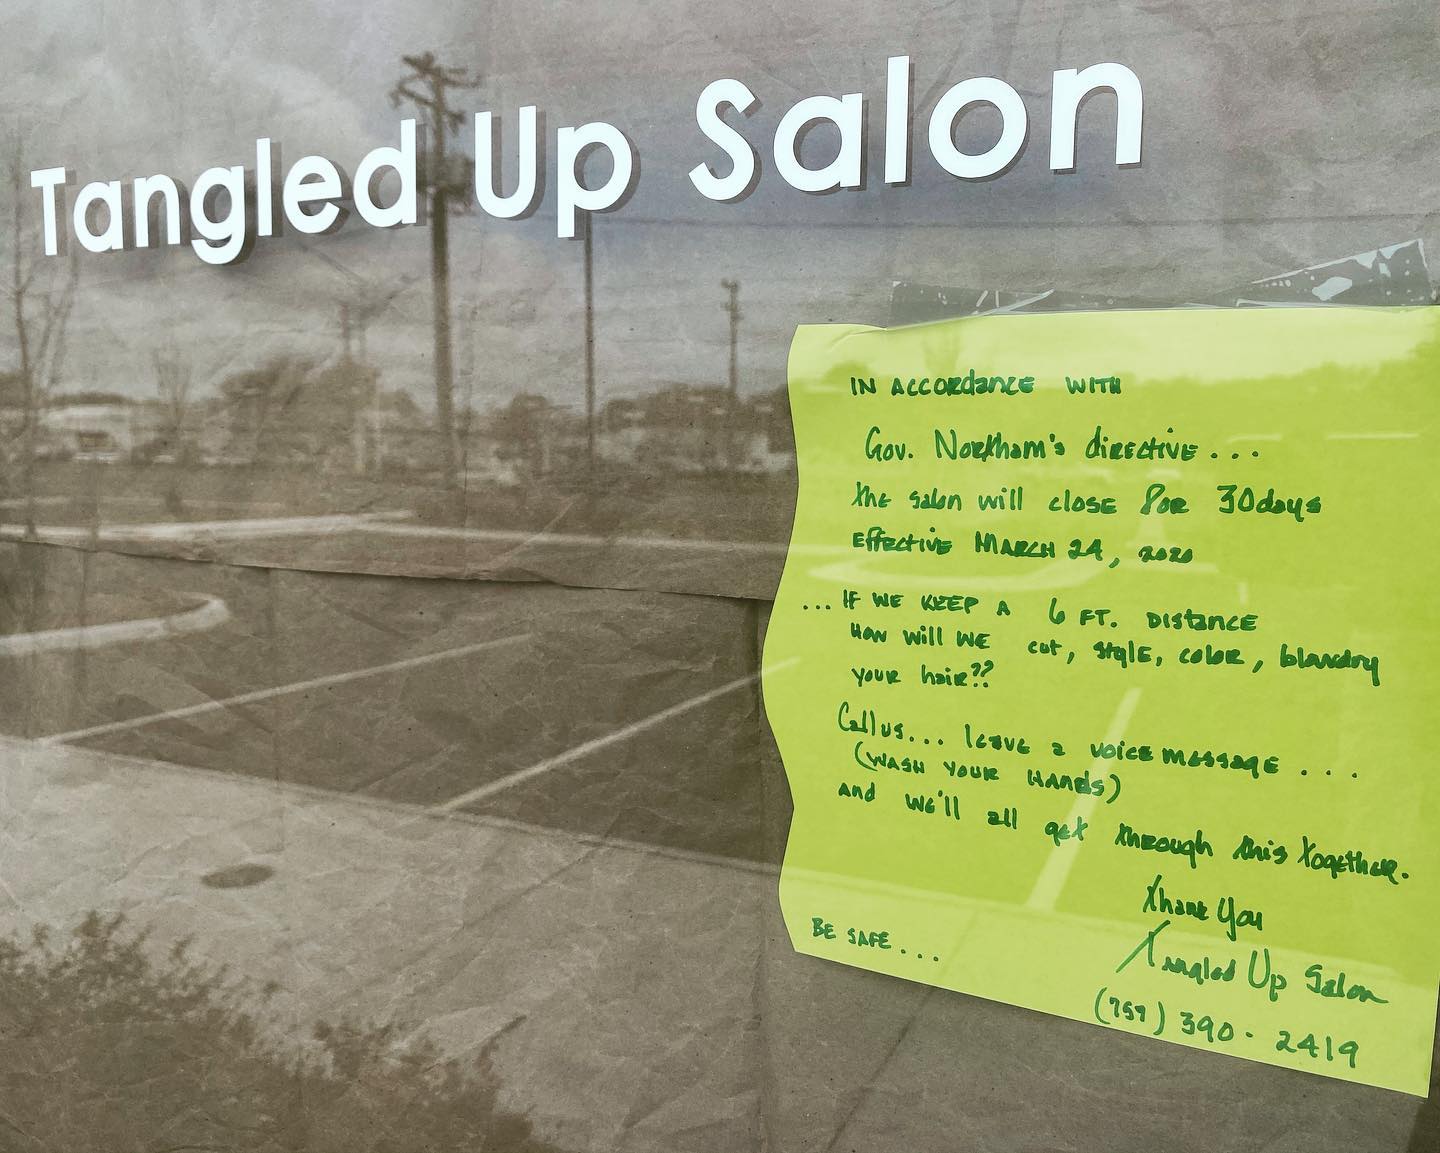 Tangled Up Salon
IN ACCORDANCE WITH
Gov. Northam's directive...
the salon will close for 30 days
Effective March 24, 2020
...IF WE KEEP A 6 FT. DISTANCE
How will WE cut, style, color, blowdry
your hair??
Call us... leave a voice message ....
(WASH YOUR HANDS)
and we'll all get through this together.
Thank You
BE SAFE....
Tangled Up Salon
(757) 390-2419